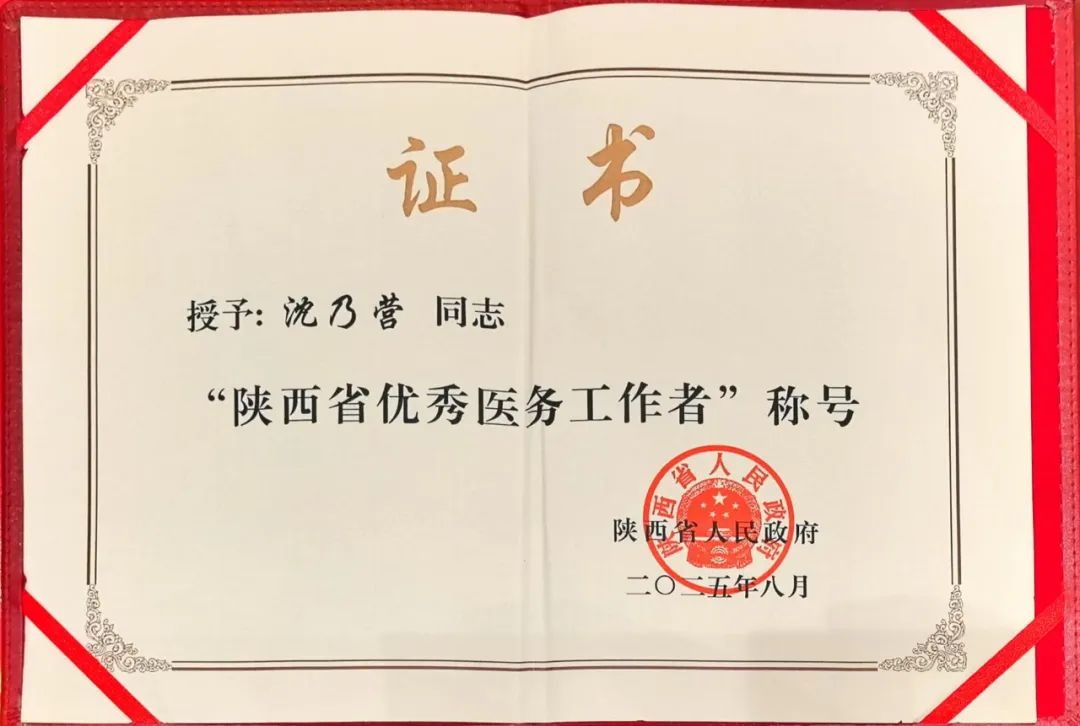 证书
授予：沈乃营 同志
“陕西省优秀医务工作者”称号
陕西省人民政府
陕西省人民政府
二〇二五年八月